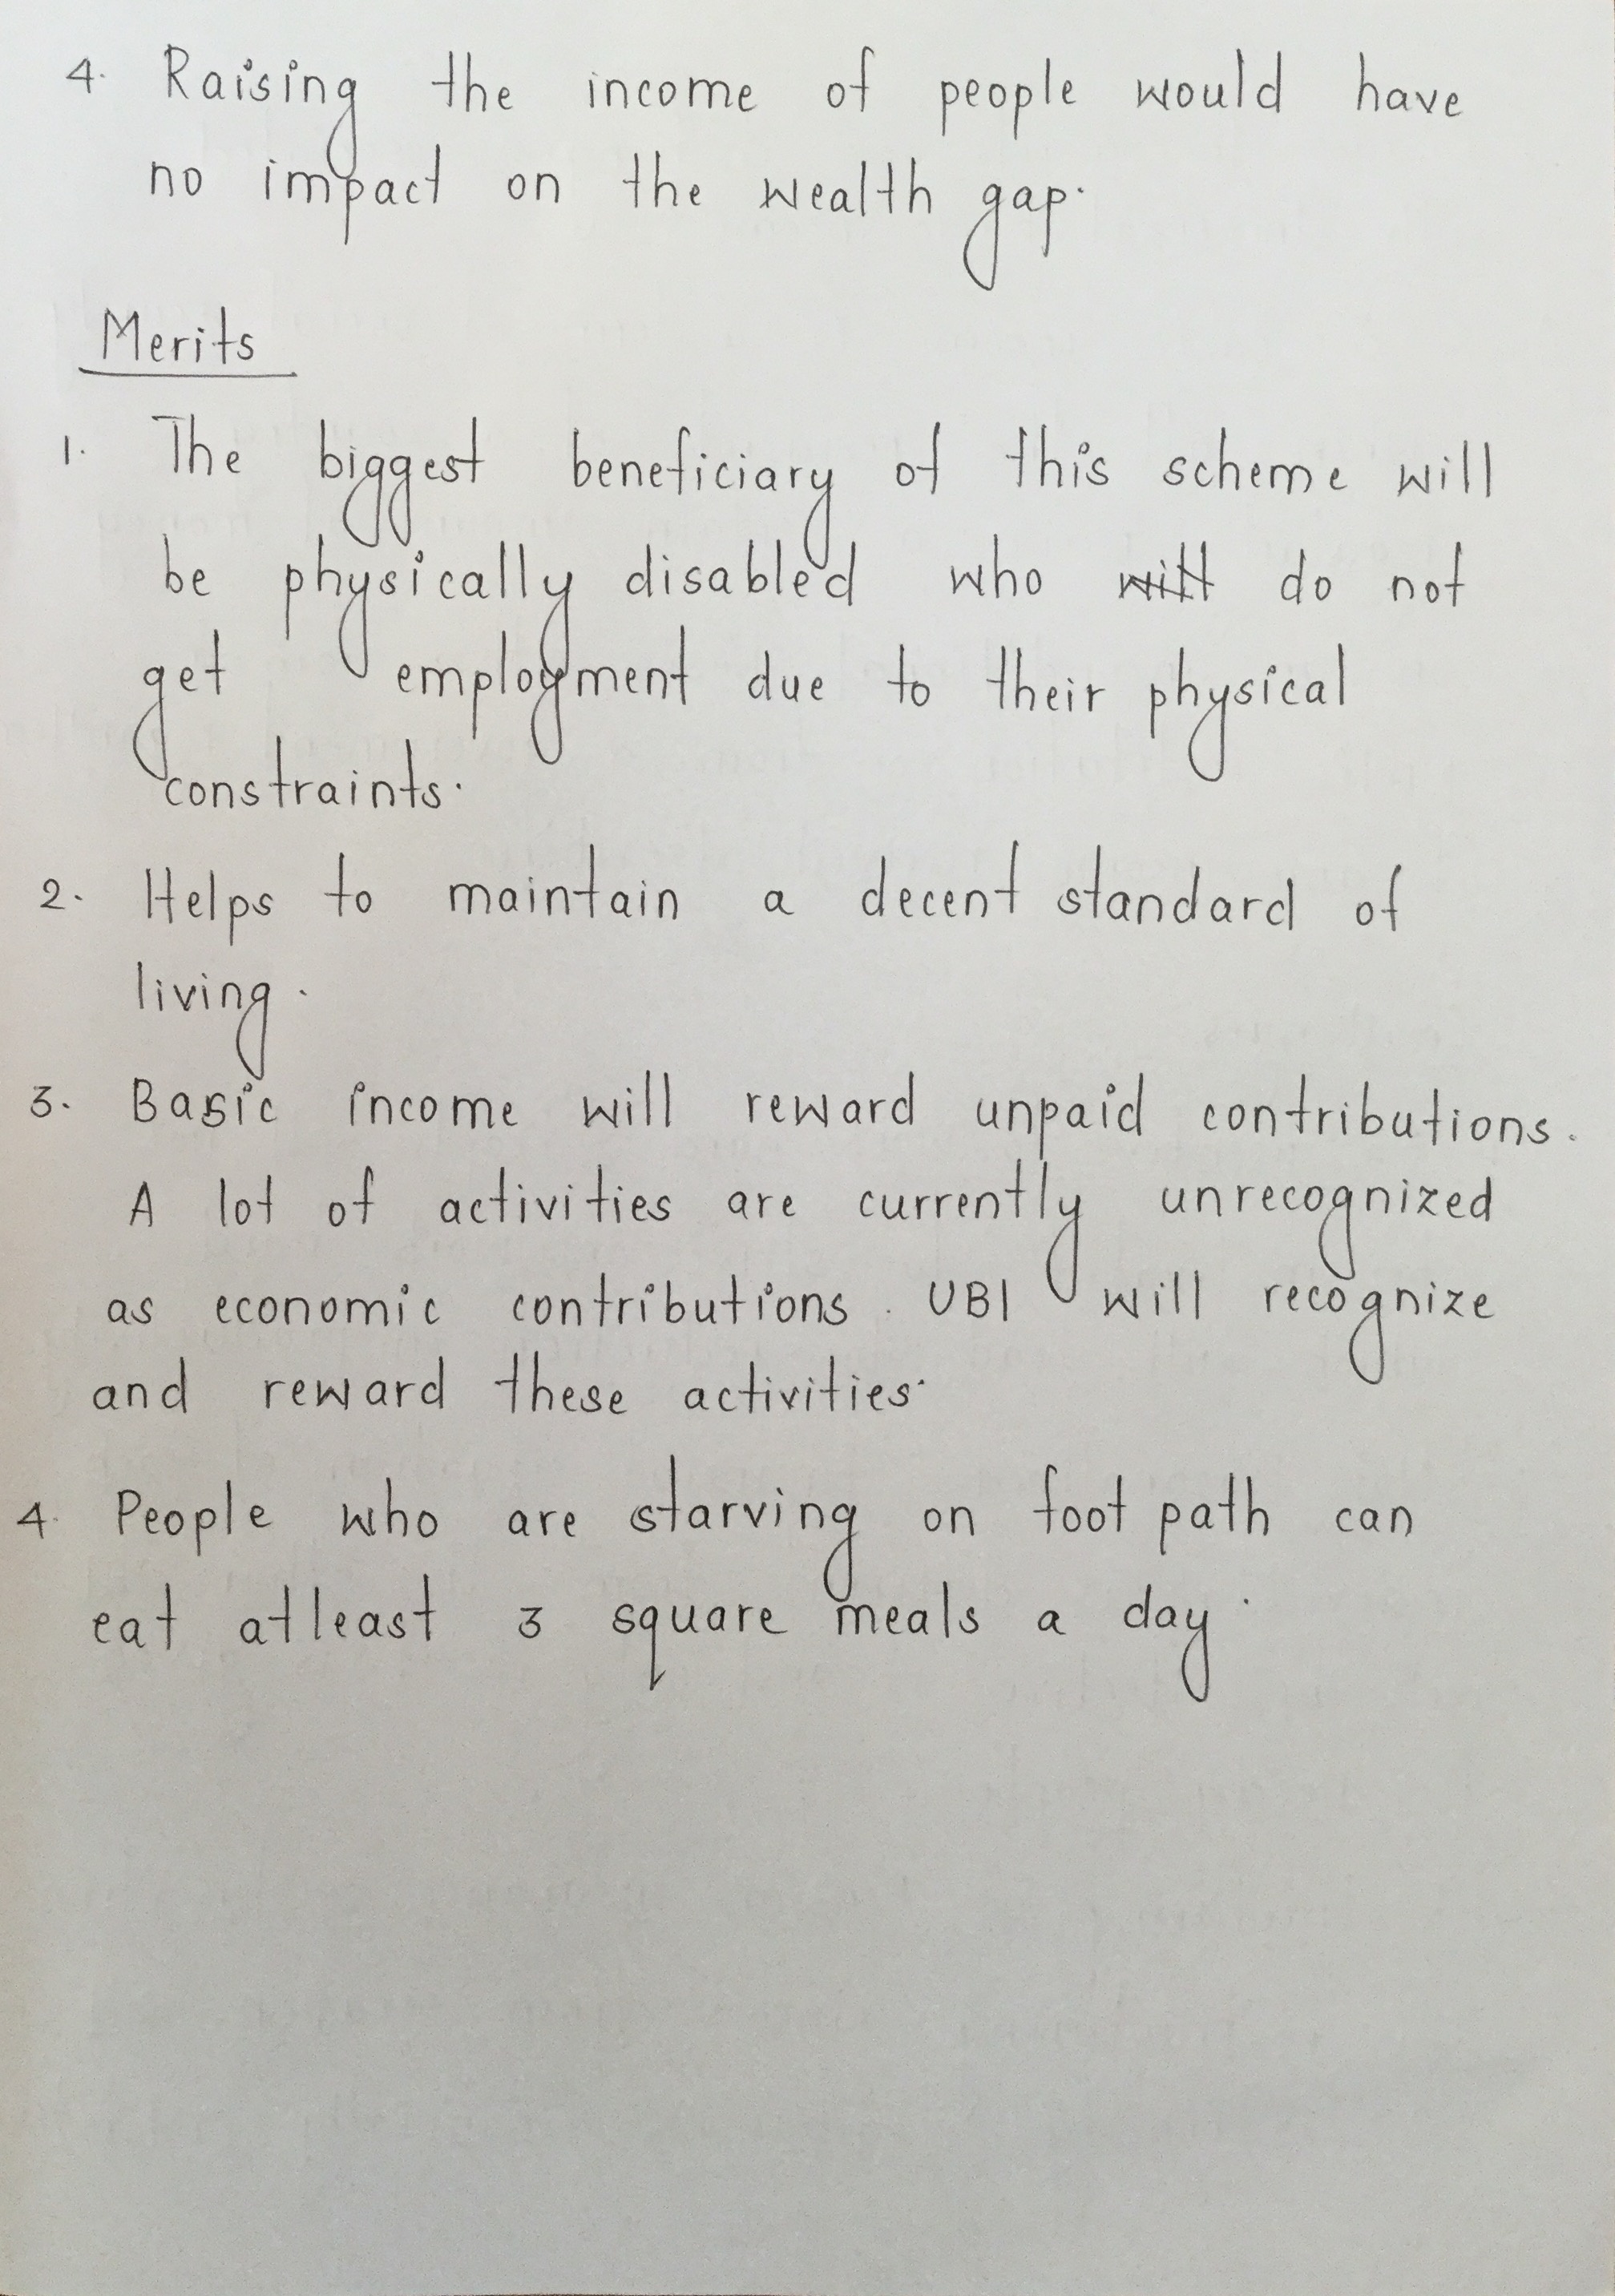 4. Raising the income of people would have
no impact on the wealth gap.
Merits
1. The biggest beneficiary of this scheme will
be physically disabled who will do not
get employment due to their physical
constraints.
2. Helps to maintain a decent standard of
living.
3. Basic income will reward unpaid contributions.
A lot of activities are currently unrecognized
as economic contributions. UBI will recognize
and reward these activities.
4. People who are starving on foot path can
eat atleast 3 square meals a day.